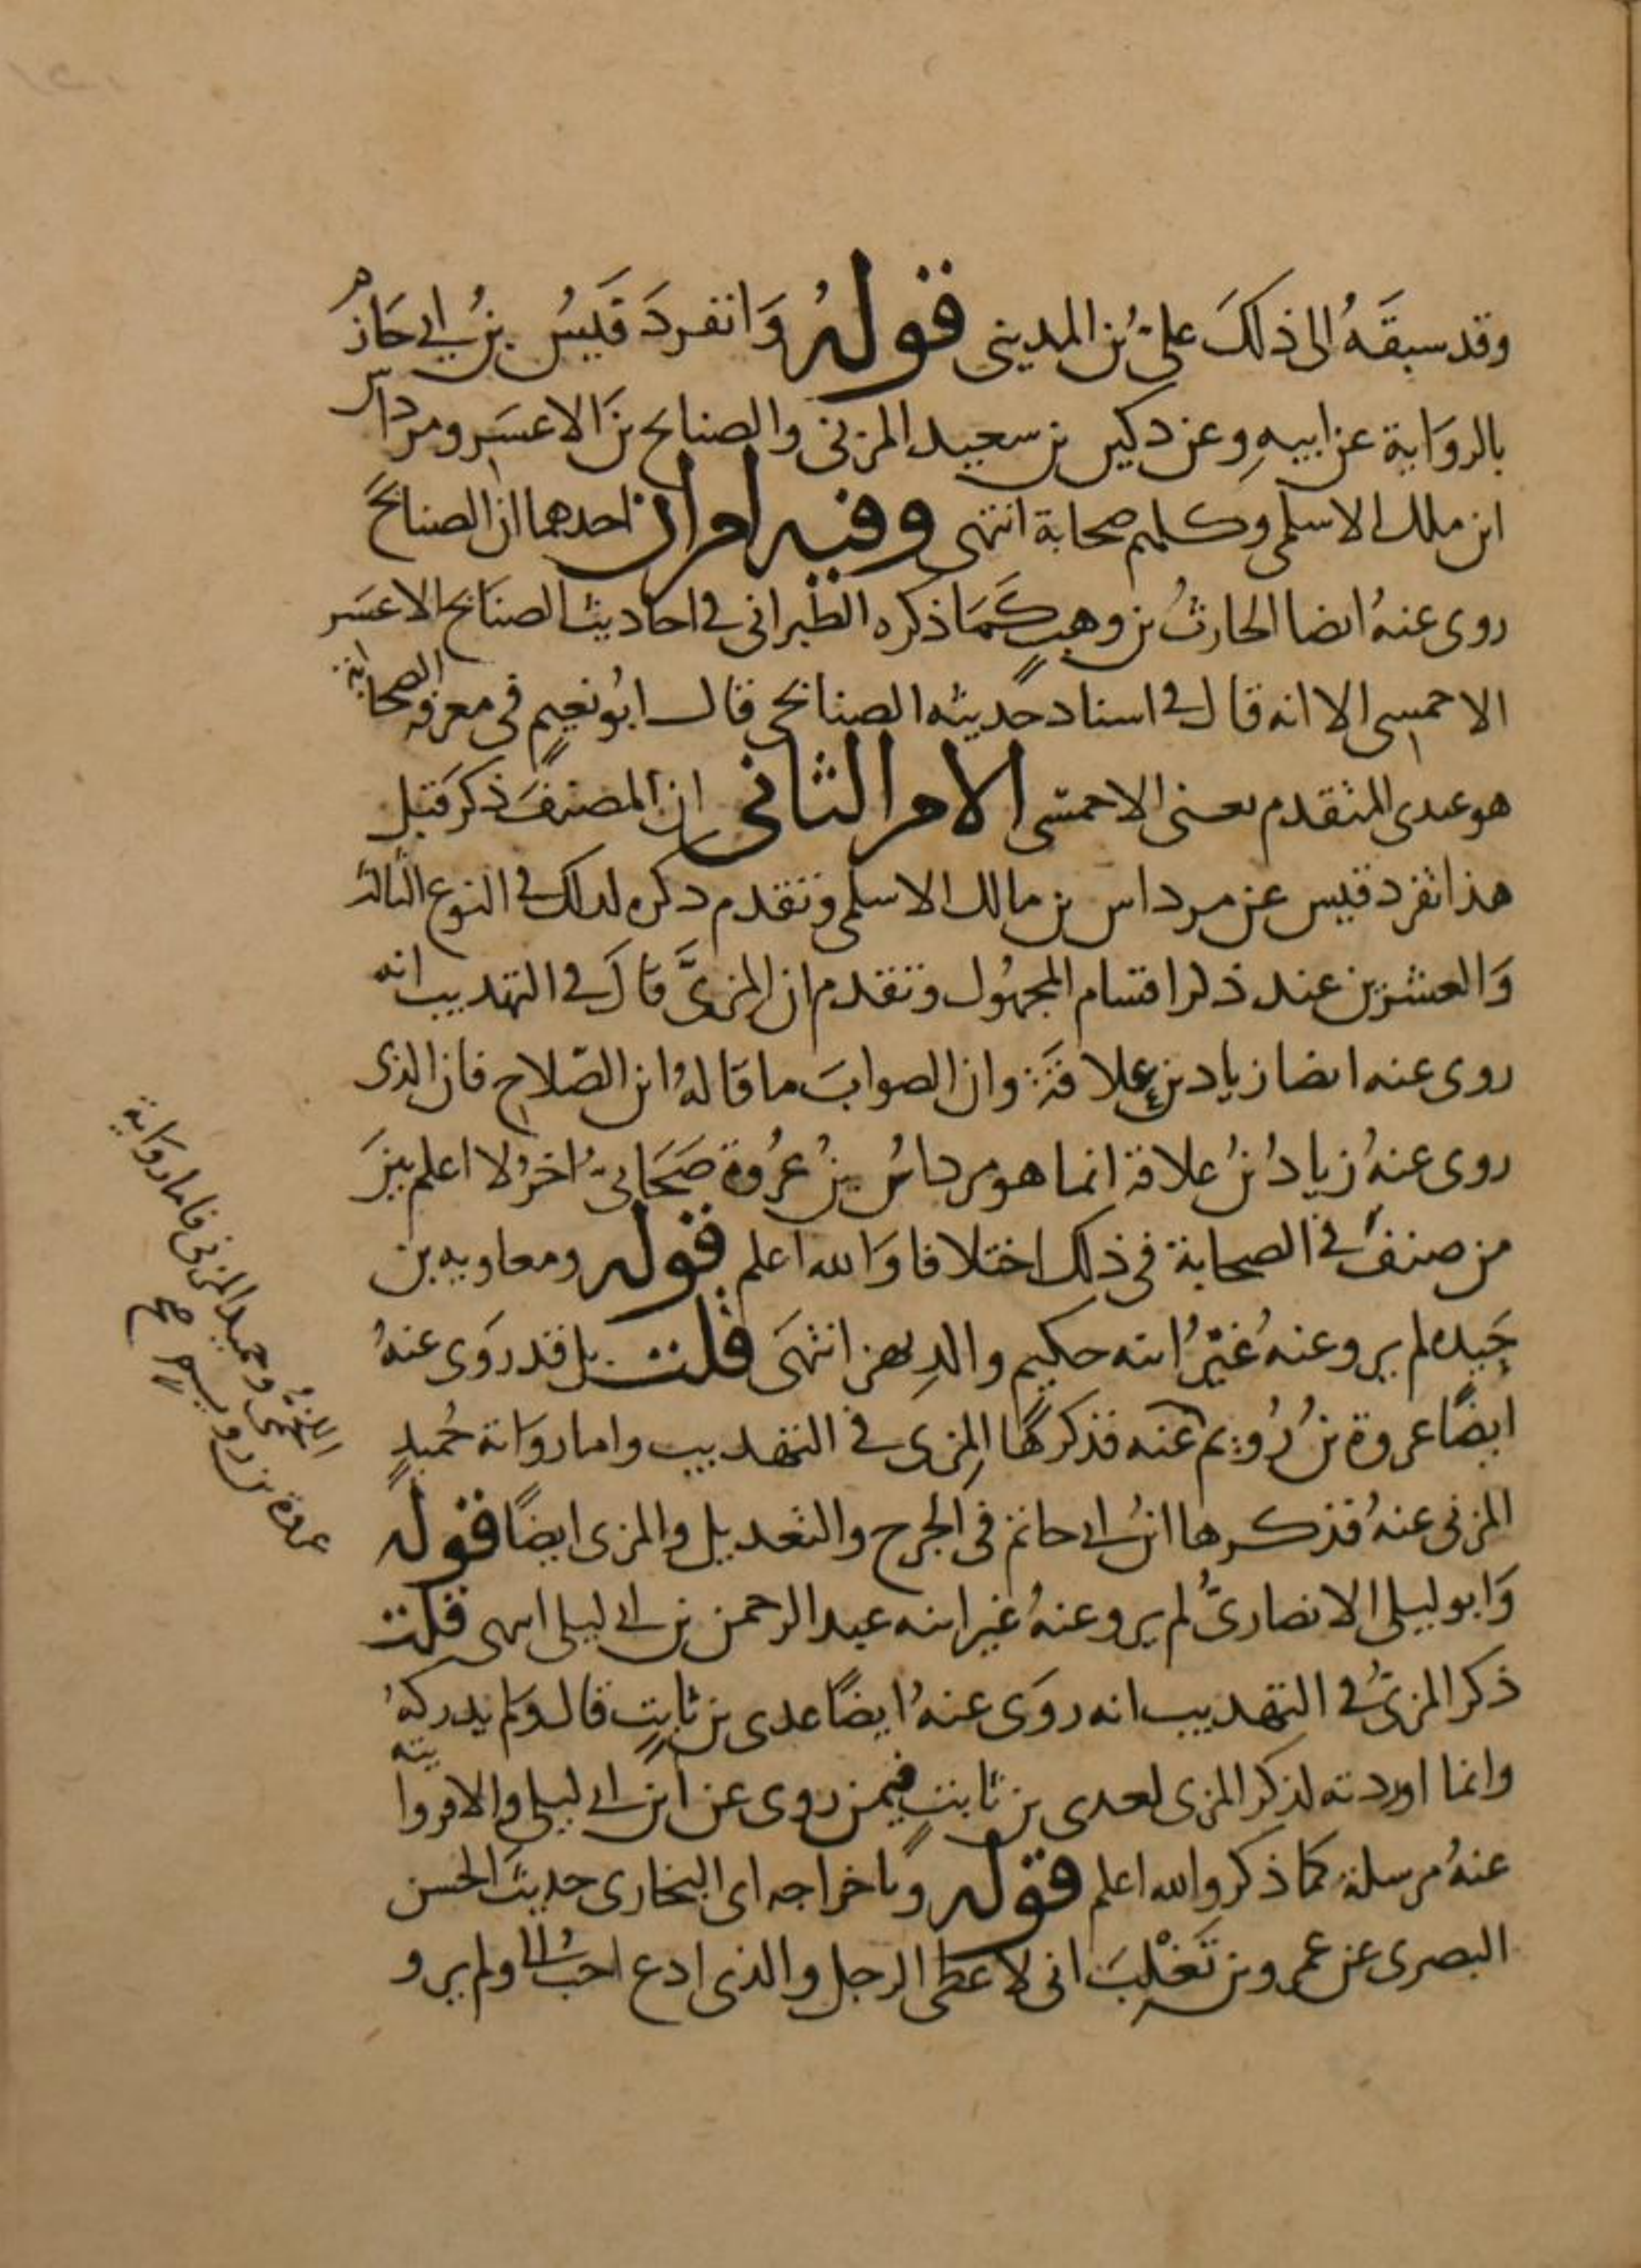 وقد سبقَهُ الى ذلكَ علىّ بن المديني قوله وَانفردَ قَيسُ بنُ ابي حَازم
بالروَاية عن ابيهِ وعن دكين بن سعيد المزنى والصنابح بن الاعسَر ومرداس
ابن ملك الاسلمى وكلهم صحابة انتهى وفيه امران احدهما ان الصنابحَ
روى عنهُ ايضا الحارثُ بن وهبٍ كَمَا ذكره الطبرانى في احاديث الصنابح الاعسَر
الاحمسى الا انه قال في اسناد حديثه الصنابحى قال ابُو نعيم في معرفة الصحابة
هو عندى المتقدم يعنى الاحمسى الامر الثانى ان المصنفَ ذكر قبل
هذا تفرد قيس عن مرداس بن مالك الاسلمى وتقدم ذكره لذلك في النوع الثالث
وَالعشرين عند ذكر اقسام المجهُول وتقدم ان المزىَّ قال في التهذيب انه
روى عنه ايضا زياد بن عِلاقَة وان الصوابَ ما قالهُ ابن الصّلاح فان الذى
روى عنهُ زيادُ بنُ علاقة انما هو مرداسُ بنُ عُروَة صَحَابىّ اخرُ لا اعلم بينَ
من صنفَ في الصحابة في ذلك اختلافا وَالله اعلم قوله ومعاويه بن
حَيده لم يرو عنهُ غيرُ ابنه حكيم والدِ بهز انتهَى قلت بل قد روَى عنهُ
ايضًا عروة بنُ رُويم عنه فذكرهَا المِزى في التهذيب واما روَاية حُميدٍ
المزنى عنهُ فذكرها ابنُ ابي حاتم في الجرح والتعديل والمزى ايضًا قوله
وَابو ليلى الانصارىُّ لم يرو عنهُ غير ابنه عبد الرحمن بن ابي ليلى انتهى قلت
ذكر المزىُّ في التهذيب انه روَى عنهُ ايضًا عدى بن ثابتٍ قال ولم يدركهُ
وانما اوردته لذكر المزى لعدى بن ثابتٍ فيمن روى عن ابن ابي ليلى والا فروايته
عنهُ مرسلة كما ذكر والله اعلم قوله وباخراجه اى البخارى حديثَ الحسن
البصرى عن عمرو بن تَغْلِبَ انى لاعطى الرجل والذى ادع احبُّ الىّ ولم يرو
وحميد المزنى فاما روَاية
عروة بن رويمٍ صح